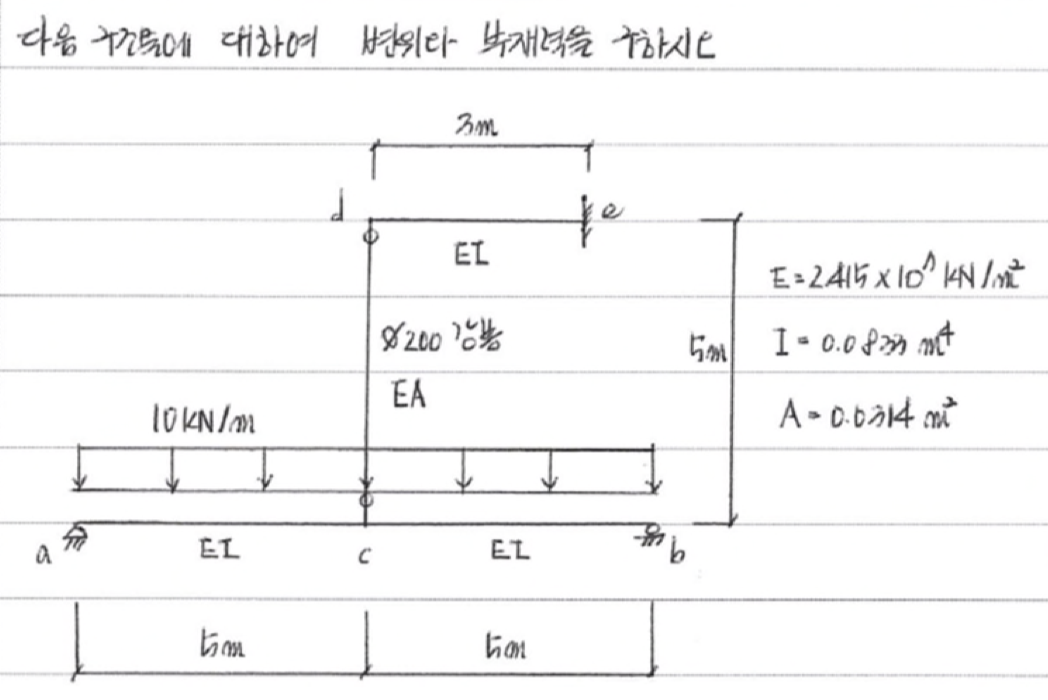 다음 구조물에 대하여 변위와 부재력을 구하시오
3m
d
e
EI
E=2.415×10⁸ kN/m²
ø200 강봉
5m
I=0.0833 m⁴
EA
10kN/m
A=0.0314 m²
a
EI
c
EI
b
5m
5m